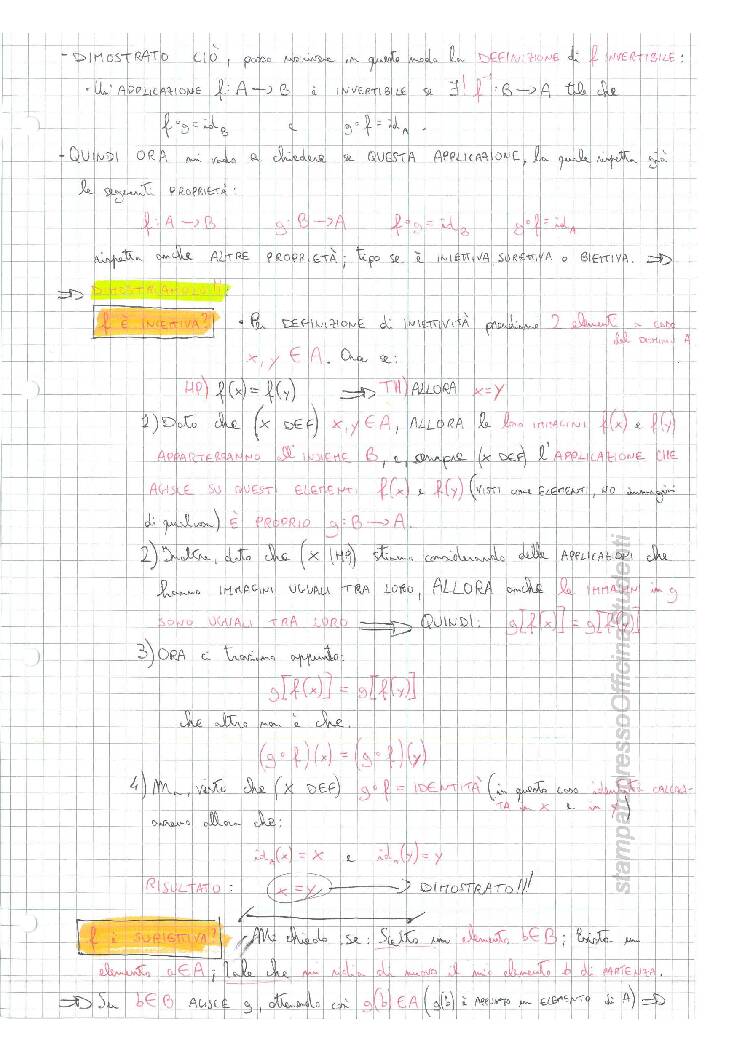 - DIMOSTRATO CIÒ, posso riscrivere in questo modo la DEFINIZIONE di f INVERTIBILE:
· Un' APPLICAZIONE f: A → B è INVERTIBILE se ∃! f⁻¹: B → A tale che
f∘g = id_B e g∘f = id_A.
- QUINDI ORA mi vado a chiedere se QUESTA APPLICAZIONE, la quale rispetta già
le seguenti PROPRIETÀ:
f: A → B g: B → A f∘g = id_B g∘f = id_A
rispetta anche ALTRE PROPRIETÀ; tipo se è INIETTIVA SURIETTIVA o BIETTIVA. ⇒
⇒ DIMOSTRIAMOLO!!!:
f È INIETTIVA? • Per DEFINIZIONE di INIETTIVITÀ prendiamo 2 elementi a caso
del DOMINIO A
x, y ∈ A. Ora se:
HP) f(x) = f(y) ⇒ TH) ALLORA x=y
1) Dato che (X DEF) x, y ∈ A, ALLORA le loro IMMAGINI f(x) e f(y)
APPARTERRANNO all'INSIEME B, e, sempre (X DEF) l'APPLICAZIONE CHE
AGISCE SU QUESTI ELEMENTI f(x) e f(y) (VISTI come ELEMENTI, NO immagini
di qualcosa) È PROPRIO g: B → A.
2) Inoltre, dato che (X HP) stiamo considerando delle APPLICAZIONI che
hanno IMMAGINI UGUALI TRA LORO, ALLORA anche le IMMAGINI in g
SONO UGUALI TRA LORO ⇒ QUINDI: g[f(x)] = g[f(y)]
3) ORA ci troviamo appunto:
g[f(x)] = g[f(y)]
che altro non è che.
(g∘f)(x) = (g∘f)(y)
4) Ma, visto che (X DEF) g∘f = IDENTITÀ (in questo caso identità CALCOLA-
TA in X e in Y)
avremo allora che:
id_A(x) = x e id_A(y) = y
RISULTATO: x = y → DIMOSTRATO!!!
f è SURIETTIVA? Mi chiedo se: Scelto un elemento b∈B; Esista un
elemento a∈A; tale che mi ridia di nuovo il mio elemento b di PARTENZA.
⇒ Su b∈B AGISCE g, ottenendo così g(b) ∈ A (g(b) è APPUNTO un ELEMENTO di A) ⇒
stampatopressoOfficinaStudenti